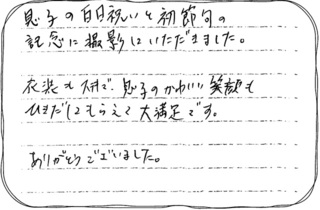 息子の百日祝いと初節句の
記念に撮影いただきました。
衣装も で、息子のかわいい笑顔も
ひきだしてもらえて大満足です。
ありがとうございました。